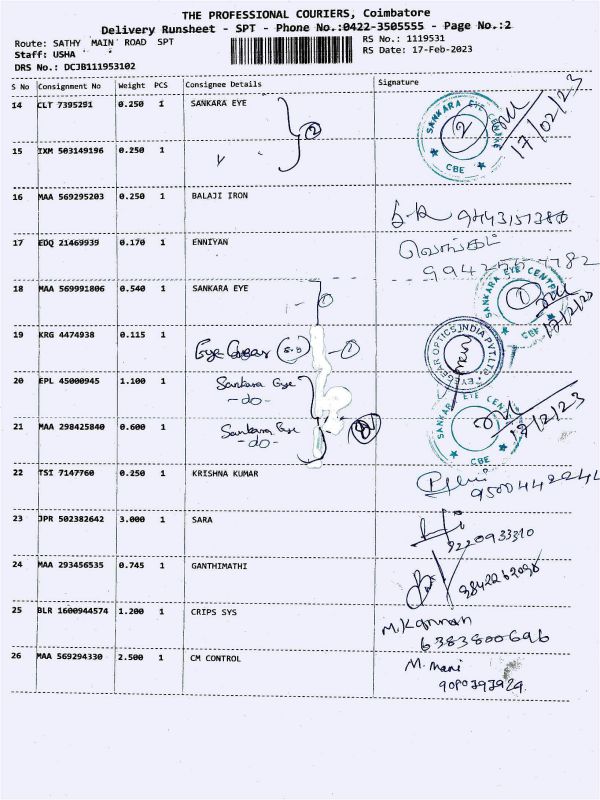 THE PROFESSIONAL COURIERS, Coimbatore
Delivery Runsheet - SPT - Phone No.:0422-3505555 - Page No.:2
Route: SATHY MAIN ROAD SPT
RS No.: 1119531
Staff: USHA
RS Date: 17-Feb-2023
DRS No.: DCJB111953102
S No Consignment No Weight PCS Consignee Details Signature
14 CLT 7395291 0.250 1 SANKARA EYE
2
SANKARA EYE CENTRE
2
CBE
17/02/23
15 IXM 503149196 0.250 1
16 MAA 569295203 0.250 1 BALAJI IRON
17 EDQ 21469939 0.170 1 ENNIYAN
18 MAA 569991806 0.540 1 SANKARA EYE
1
SANKARA EYE CENTRE
1
CBE
17/2/23
19 KRG 4474938 0.115 1
1
EYEGEAR OPTICS INDIA PVT.LTD
20 EPL 45000945 1.100 1 Sankara Eye
-do-
SANKARA EYE
CBE
17/2/23
21 MAA 298425840 0.600 1 Sankara Eye
-do-
2
22 TSI 7147760 0.250 1 KRISHNA KUMAR
23 JPR 502382642 3.000 1 SARA
9220933310
24 MAA 293456535 0.745 1 GANTHIMATHI
9842262098
25 BLR 1600944574 1.200 1 CRIPS SYS M.Kannan
6383800696
26 MAA 569294330 2.500 1 CM CONTROL M. mani